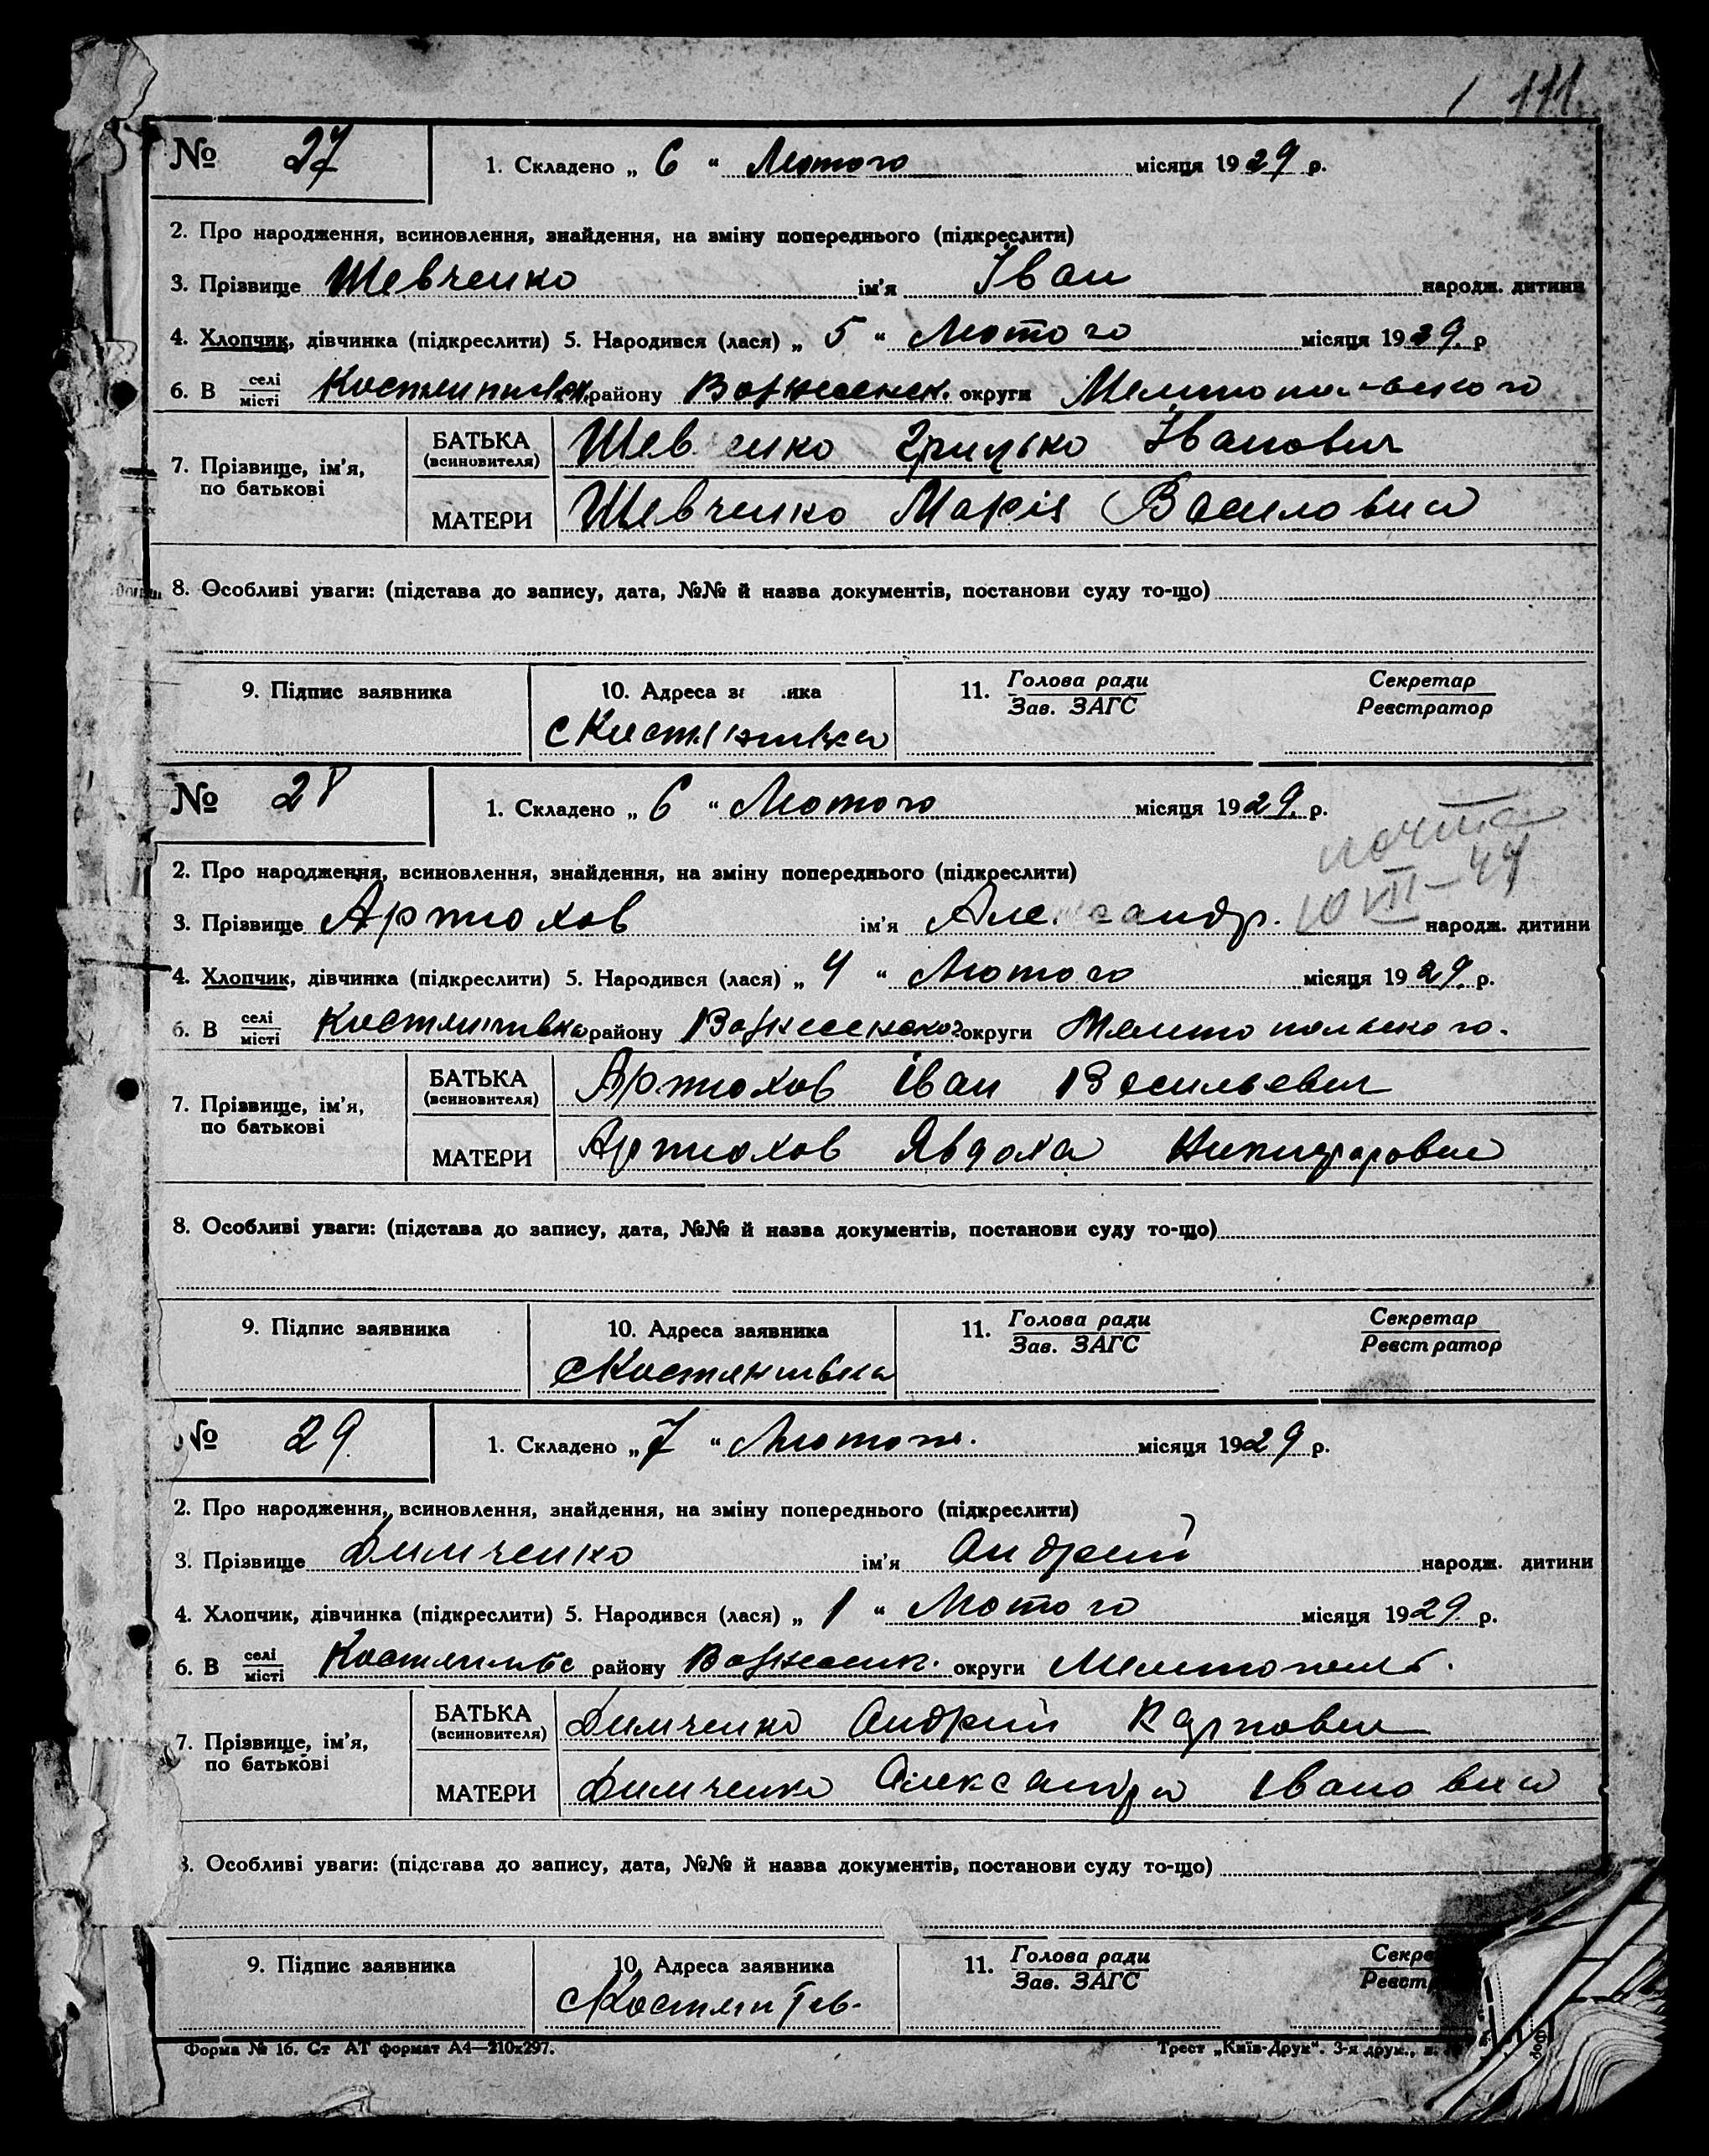 111.
№ 27 1. Складено „ 6 “ Лютого місяця 1929 р.
2. Про народження, всиновлення, знайдення, на зміну попереднього (підкреслити)
3. Прізвище Шевченко ім'я Іван народж. дитини
4. Хлопчик, дівчинка (підкреслити) 5. Народився (лася) „ 5 “ Лютого місяця 1929. р
6. В селі/місті району Вознесенск. округи Мелитопольського
7. Прізвище, ім'я, по батькові
БАТЬКА (всиновителя) Шев енко Грицько Іванович
МАТЕРИ Шевченко Марія
8. Особливі уваги: (підстава до запису, дата, №№ й назва документів, постанови суду то-що)
9. Підпис заявника 10. Адреса за ника 11. Голова ради Секретар
Зав. ЗАГС Реєстратор
с
№ 28 1. Складено „ 6 “ Лютого місяця 1929. р.
почта
10 VII – 47
2. Про народження, всиновлення, знайдення, на зміну попереднього (підкреслити)
3. Прізвище Артюхов ім'я Александр. народж. дитини
4. Хлопчик, дівчинка (підкреслити) 5. Народився (лася) „ 4 “ Лютого місяця 1929. р.
6. В селі/місті Костянтивка району Вознесенского округи Мелитопольского.
7. Прізвище, ім'я, по батькові
БАТЬКА (всиновителя) Артюхов Іван Васильевич
МАТЕРИ Артюхов Явдоха
8. Особливі уваги: (підстава до запису, дата, №№ й назва документів, постанови суду то-що)
9. Підпис заявника 10. Адреса заявника 11. Голова ради Секретар
Зав. ЗАГС Реєстратор
с Костянтивка
№ 29. 1. Складено „ 7 “ Лютого. місяця 1929 р.
2. Про народження, всиновлення, знайдення, на зміну попереднього (підкреслити)
3. Прізвище Димченко ім'я Андрей народж. дитини
4. Хлопчик, дівчинка (підкреслити) 5. Народився (лася) „ 1 “ Лютого місяця 1929. р.
6. В селі/місті району Вознесенск. округи Мелитополь.
7. Прізвище, ім'я, по батькові
БАТЬКА (всиновителя) Димченко Андрий Карпович
МАТЕРИ Димченко Александра
8. Особливі уваги: (підстава до запису, дата, №№ й назва документів, постанови суду то-що)
9. Підпис заявника 10. Адреса заявника 11. Голова ради Секре
Зав. ЗАГС Реєст
с
Форма № 16. Ст АТ формат А4—210x297. Трест „Київ-Друк“. 3-я друк.,